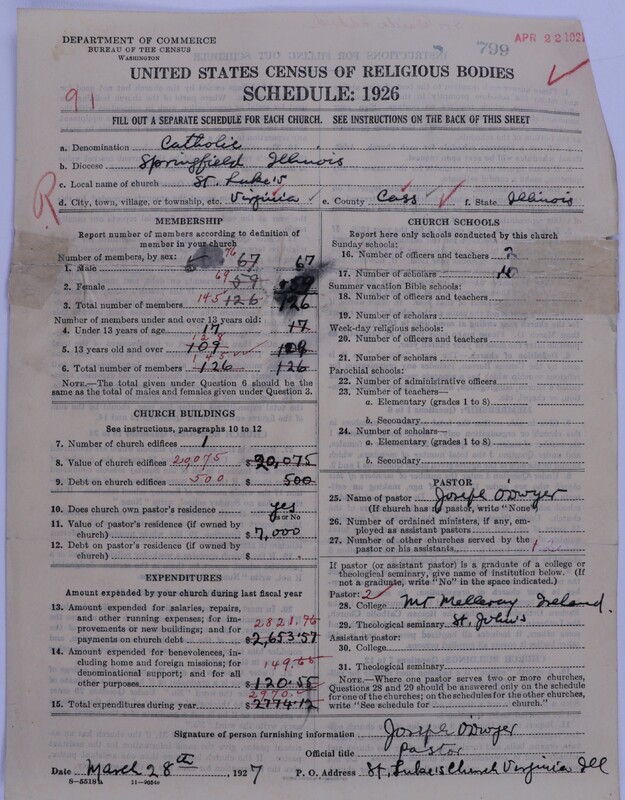 DEPARTMENT OF COMMERCE
BUREAU OF THE CENSUS
WASHINGTON
799
APR 22 192
UNITED STATES CENSUS OF RELIGIOUS BODIES
SCHEDULE: 1926
91
FILL OUT A SEPARATE SCHEDULE FOR EACH CHURCH. SEE INSTRUCTIONS ON THE BACK OF THIS SHEET
a. Denomination Catholic
b. Diocese Springfield Illinois
c. Local name of church St. Luke's
d. City, town, village, or township, etc. Virginia e. County Cass f. State Illinois
R
MEMBERSHIP
Report number of members according to definition of
member in your church
Number of members, by sex:
1. Male 76 67 67
2. Female 69 59 59
3. Total number of members 145 126 126
Number of members under and over 13 years old:
4. Under 13 years of age 17 17
5. 13 years old and over 128 109 109
6. Total number of members 145 126 126
NOTE.—The total given under Question 6 should be
the same as the total of males and females given under Question 3.
CHURCH BUILDINGS
See instructions, paragraphs 10 to 12
7. Number of church edifices 1
8. Value of church edifices 20,075 $20,075
9. Debt on church edifices 500 $500
10. Does church own pastor's residence? yes
Yes or No
11. Value of pastor's residence (if owned by
church) $7,000
12. Debt on pastor's residence (if owned by
church) $
EXPENDITURES
Amount expended by your church during last fiscal year
13. Amount expended for salaries, repairs,
and other running expenses; for im-
provements or new buildings; and for
payments on church debt 2821.96 $2,653.57
14. Amount expended for benevolences, in-
cluding home and foreign missions; for
denominational support; and for all
other purposes 149.65 $120.55
15. Total expenditures during year 2970. $2774.12
CHURCH SCHOOLS
Report here only schools conducted by this church
Sunday schools:
16. Number of officers and teachers 2
17. Number of scholars
Summer vacation Bible schools:
18. Number of officers and teachers
19. Number of scholars
Week-day religious schools:
20. Number of officers and teachers
21. Number of scholars
Parochial schools:
22. Number of administrative officers
23. Number of teachers—
a. Elementary (grades 1 to 8)
b. Secondary
24. Number of scholars—
a. Elementary (grades 1 to 8)
b. Secondary
PASTOR
25. Name of pastor Joseph O'Dwyer
(If church has no pastor, write "None")
26. Number of ordained ministers, if any, em-
ployed as assistant pastors
27. Number of other churches served by the
pastor or his assistants 1
If pastor (or assistant pastor) is a graduate of a college or
theological seminary, give name of institution below. (If
not a graduate, write "No" in the space indicated.)
Pastor: 2
28. College Mt Melleray Ireland.
29. Theological seminary St. John's
Assistant pastor:
30. College
31. Theological seminary
NOTE.—Where one pastor serves two or more churches,
Questions 28 and 29 should be answered only on the schedule
for one of the churches; on the schedules for the other churches,
write "See schedule for church."
Signature of person furnishing information Joseph O'Dwyer
Official title Pastor
Date March 28th, 1927 P. O. Address St. Luke's Church Virginia Ill
S-5518a 11-9654a